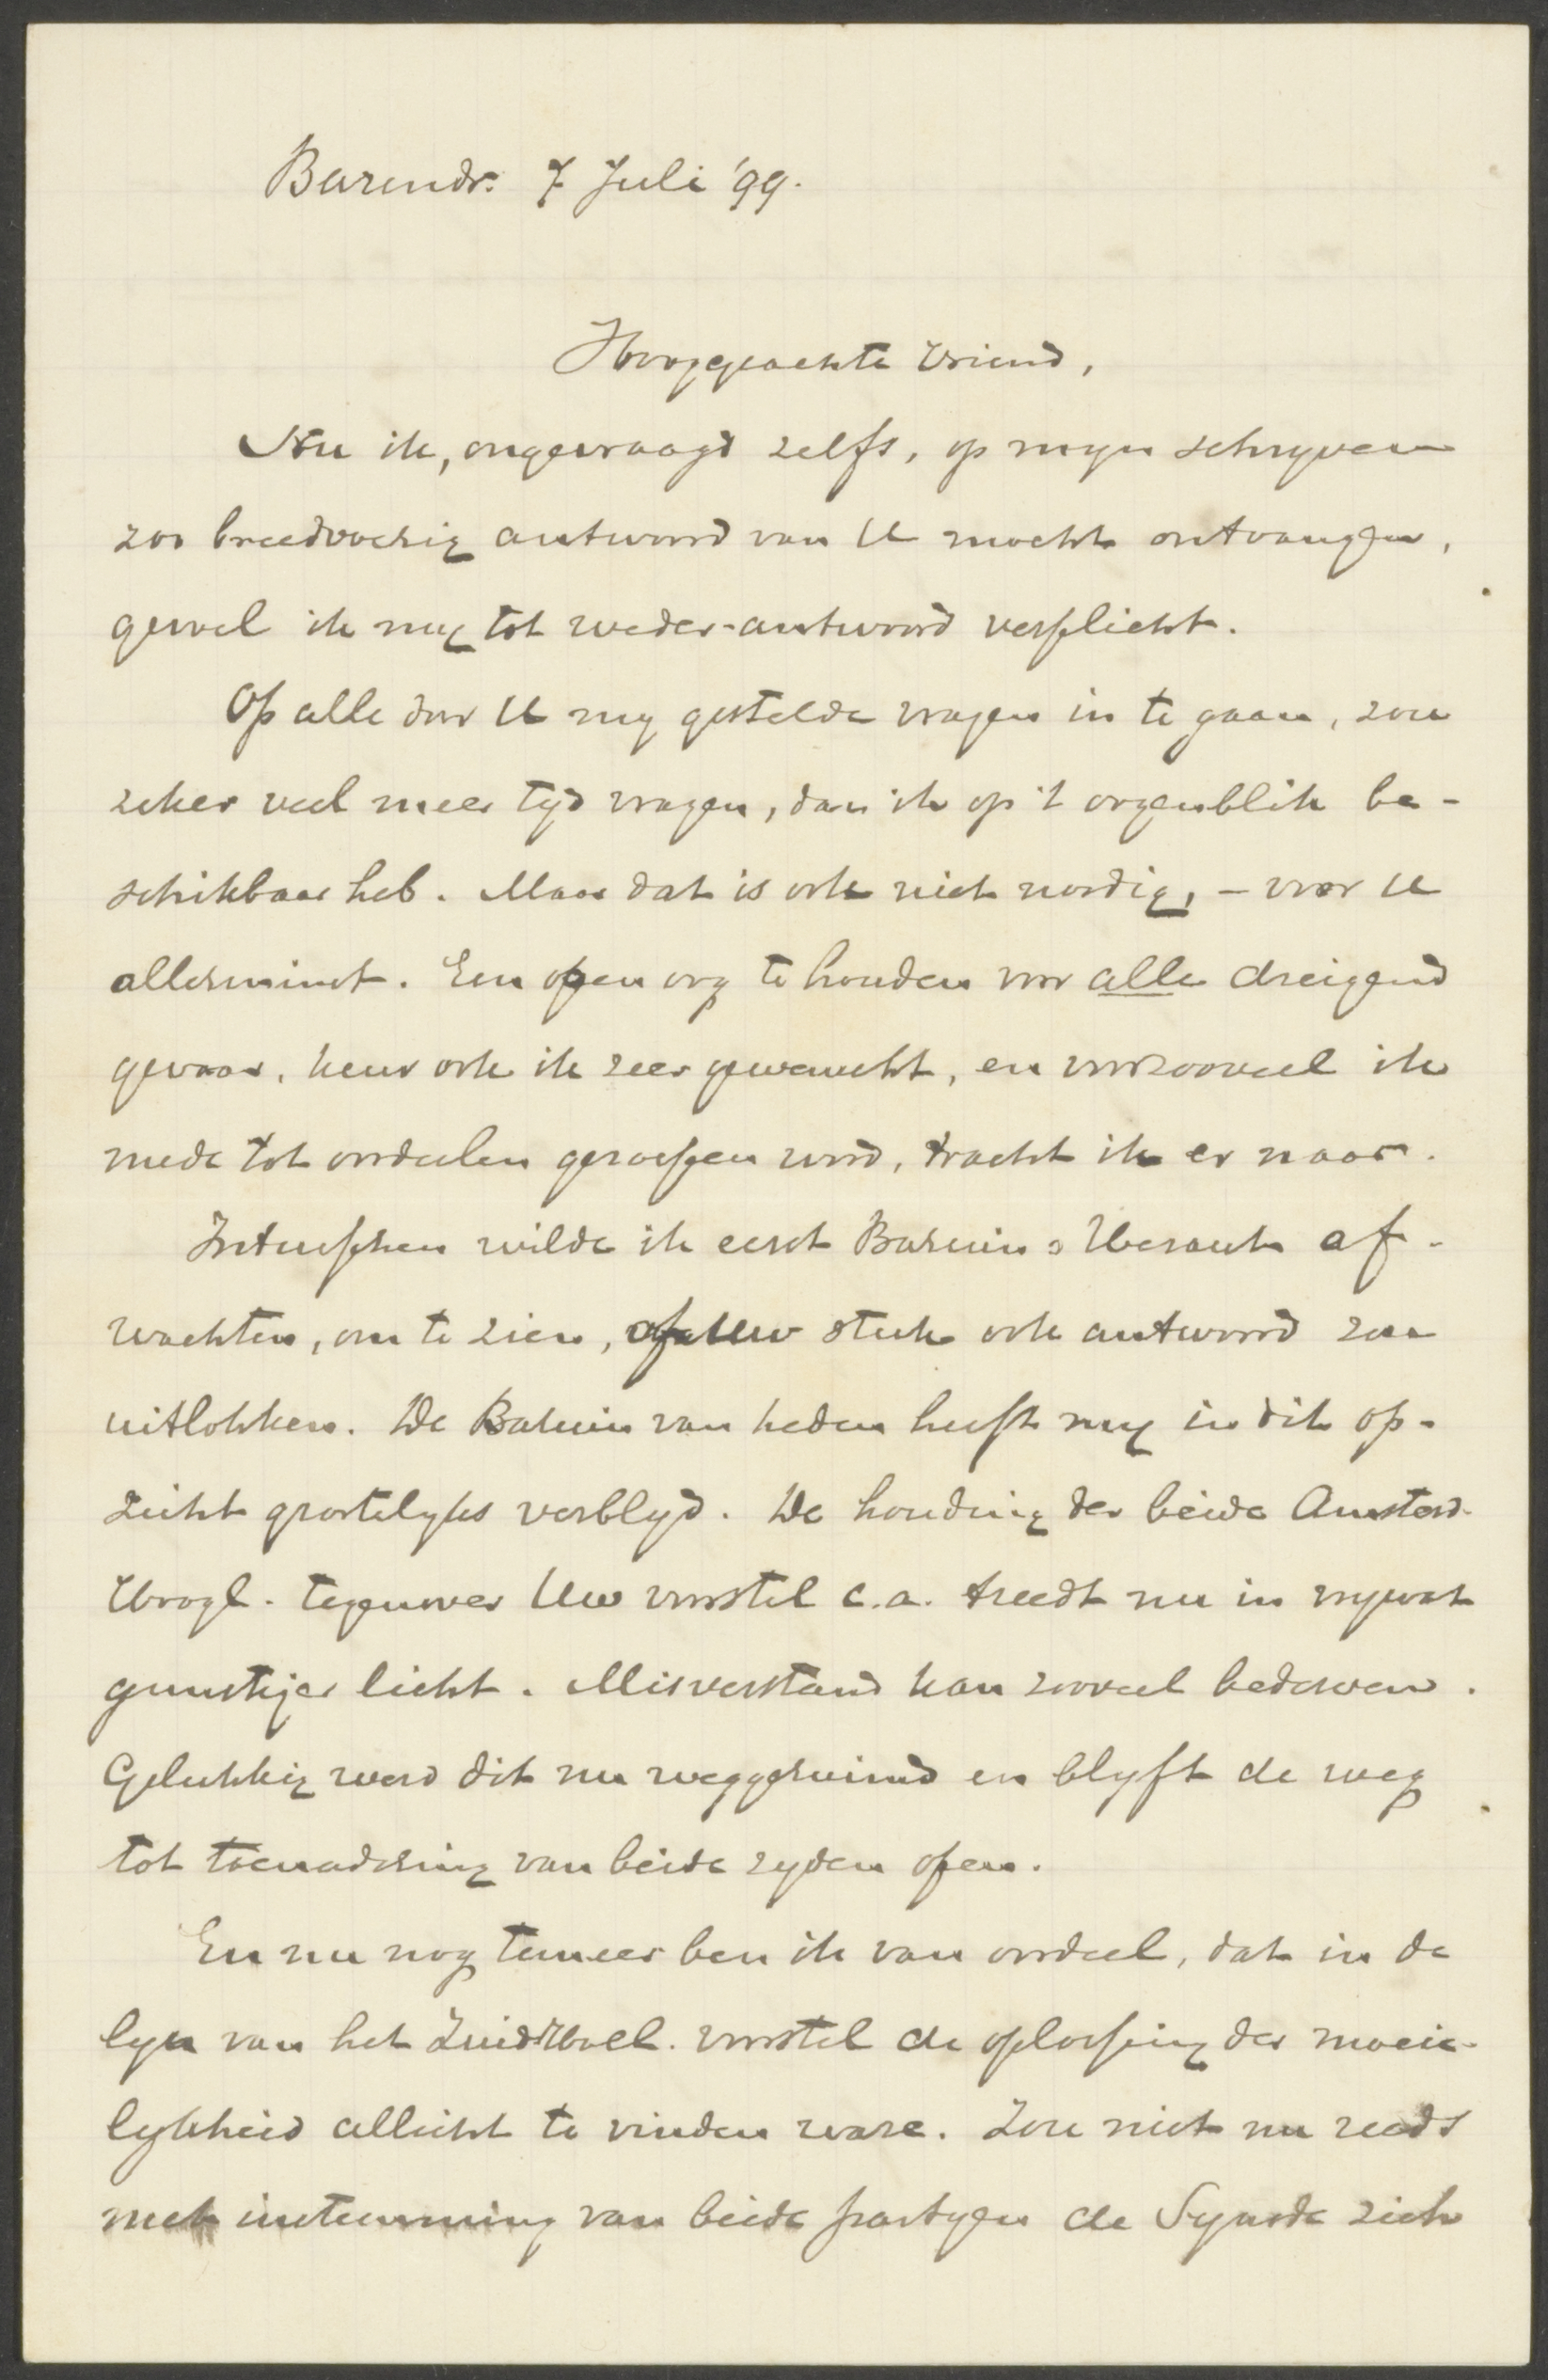 Barendr. 7 Juli '99.
Hooggeachte Vriend,
Nu ik, ongevraagd zelfs, op mijn schrijven
zoo breedvoerig antwoord van U mocht ontvangen,
gevoel ik mij tot weder-antwoord verplicht.
Op alle door U mij gestelde vragen in te gaan, zou
zeker veel meer tijd vragen, dan ik op 't oogenblik be-
schikbaar heb. Maar dat is ook niet noodig, - voor U
allerminst. Een open oog te houden voor alle dreigend
gevaar, keur ook ik zeer gewenscht, en voorzooveel ik
mede tot oordeelen geroepen word, tracht ik er naar.
Intusschen wilde ik eerst Bazuin & Heraut af-
wachten, om te zien, of Uw stuk ook antwoord zou
uitlokken. De Bazuin van heden heeft mij in dit op-
zicht grootelijks verblijd. De houding der beide Amsterd.
Hoogl. tegenover Uw voorstel c.a. treedt nu in vrijwat
gunstiger licht. Misverstand kan zooveel bederven.
Gelukkig werd dit nu weggeruimd en blijft de weg
tot toenadering van beide zijden open.
En nu nog temeer ben ik van oordeel, dat in de
lijn van het ZuidHoll. voorstel de oplossing der moeie-
lijkheid allicht te vinden ware. Zou niet nu reeds
met instemming van beide partijen de Synode zich